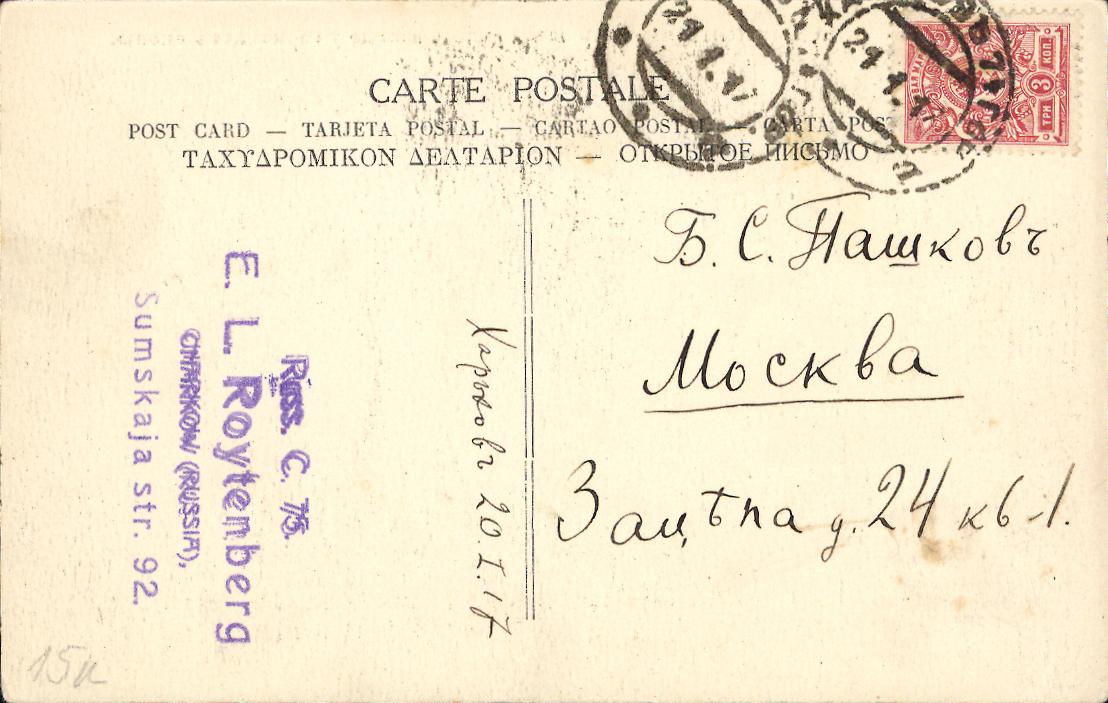 CARTE POSTALE
POST CARD — TARJETA POSTAL — CARTAO POSTAL — CARTA POS
ΤΑΧΥΔΡΟΜΙΚΟΝ ΔΕΛΤΑΡΙΟΝ — ОТКРЫТОЕ ПИСЬМО
21.1.17
21.1.17
3 КОП.
ТРИ
Б. С. Пашковъ
Москва
Зацѣпа д. 24 кв-1.
Харьковъ 20.I.17
Russ. C. 75.
E. L. Roytemberg
CHARKOW (RUSSIA),
Sumskaja str. 92.
15к